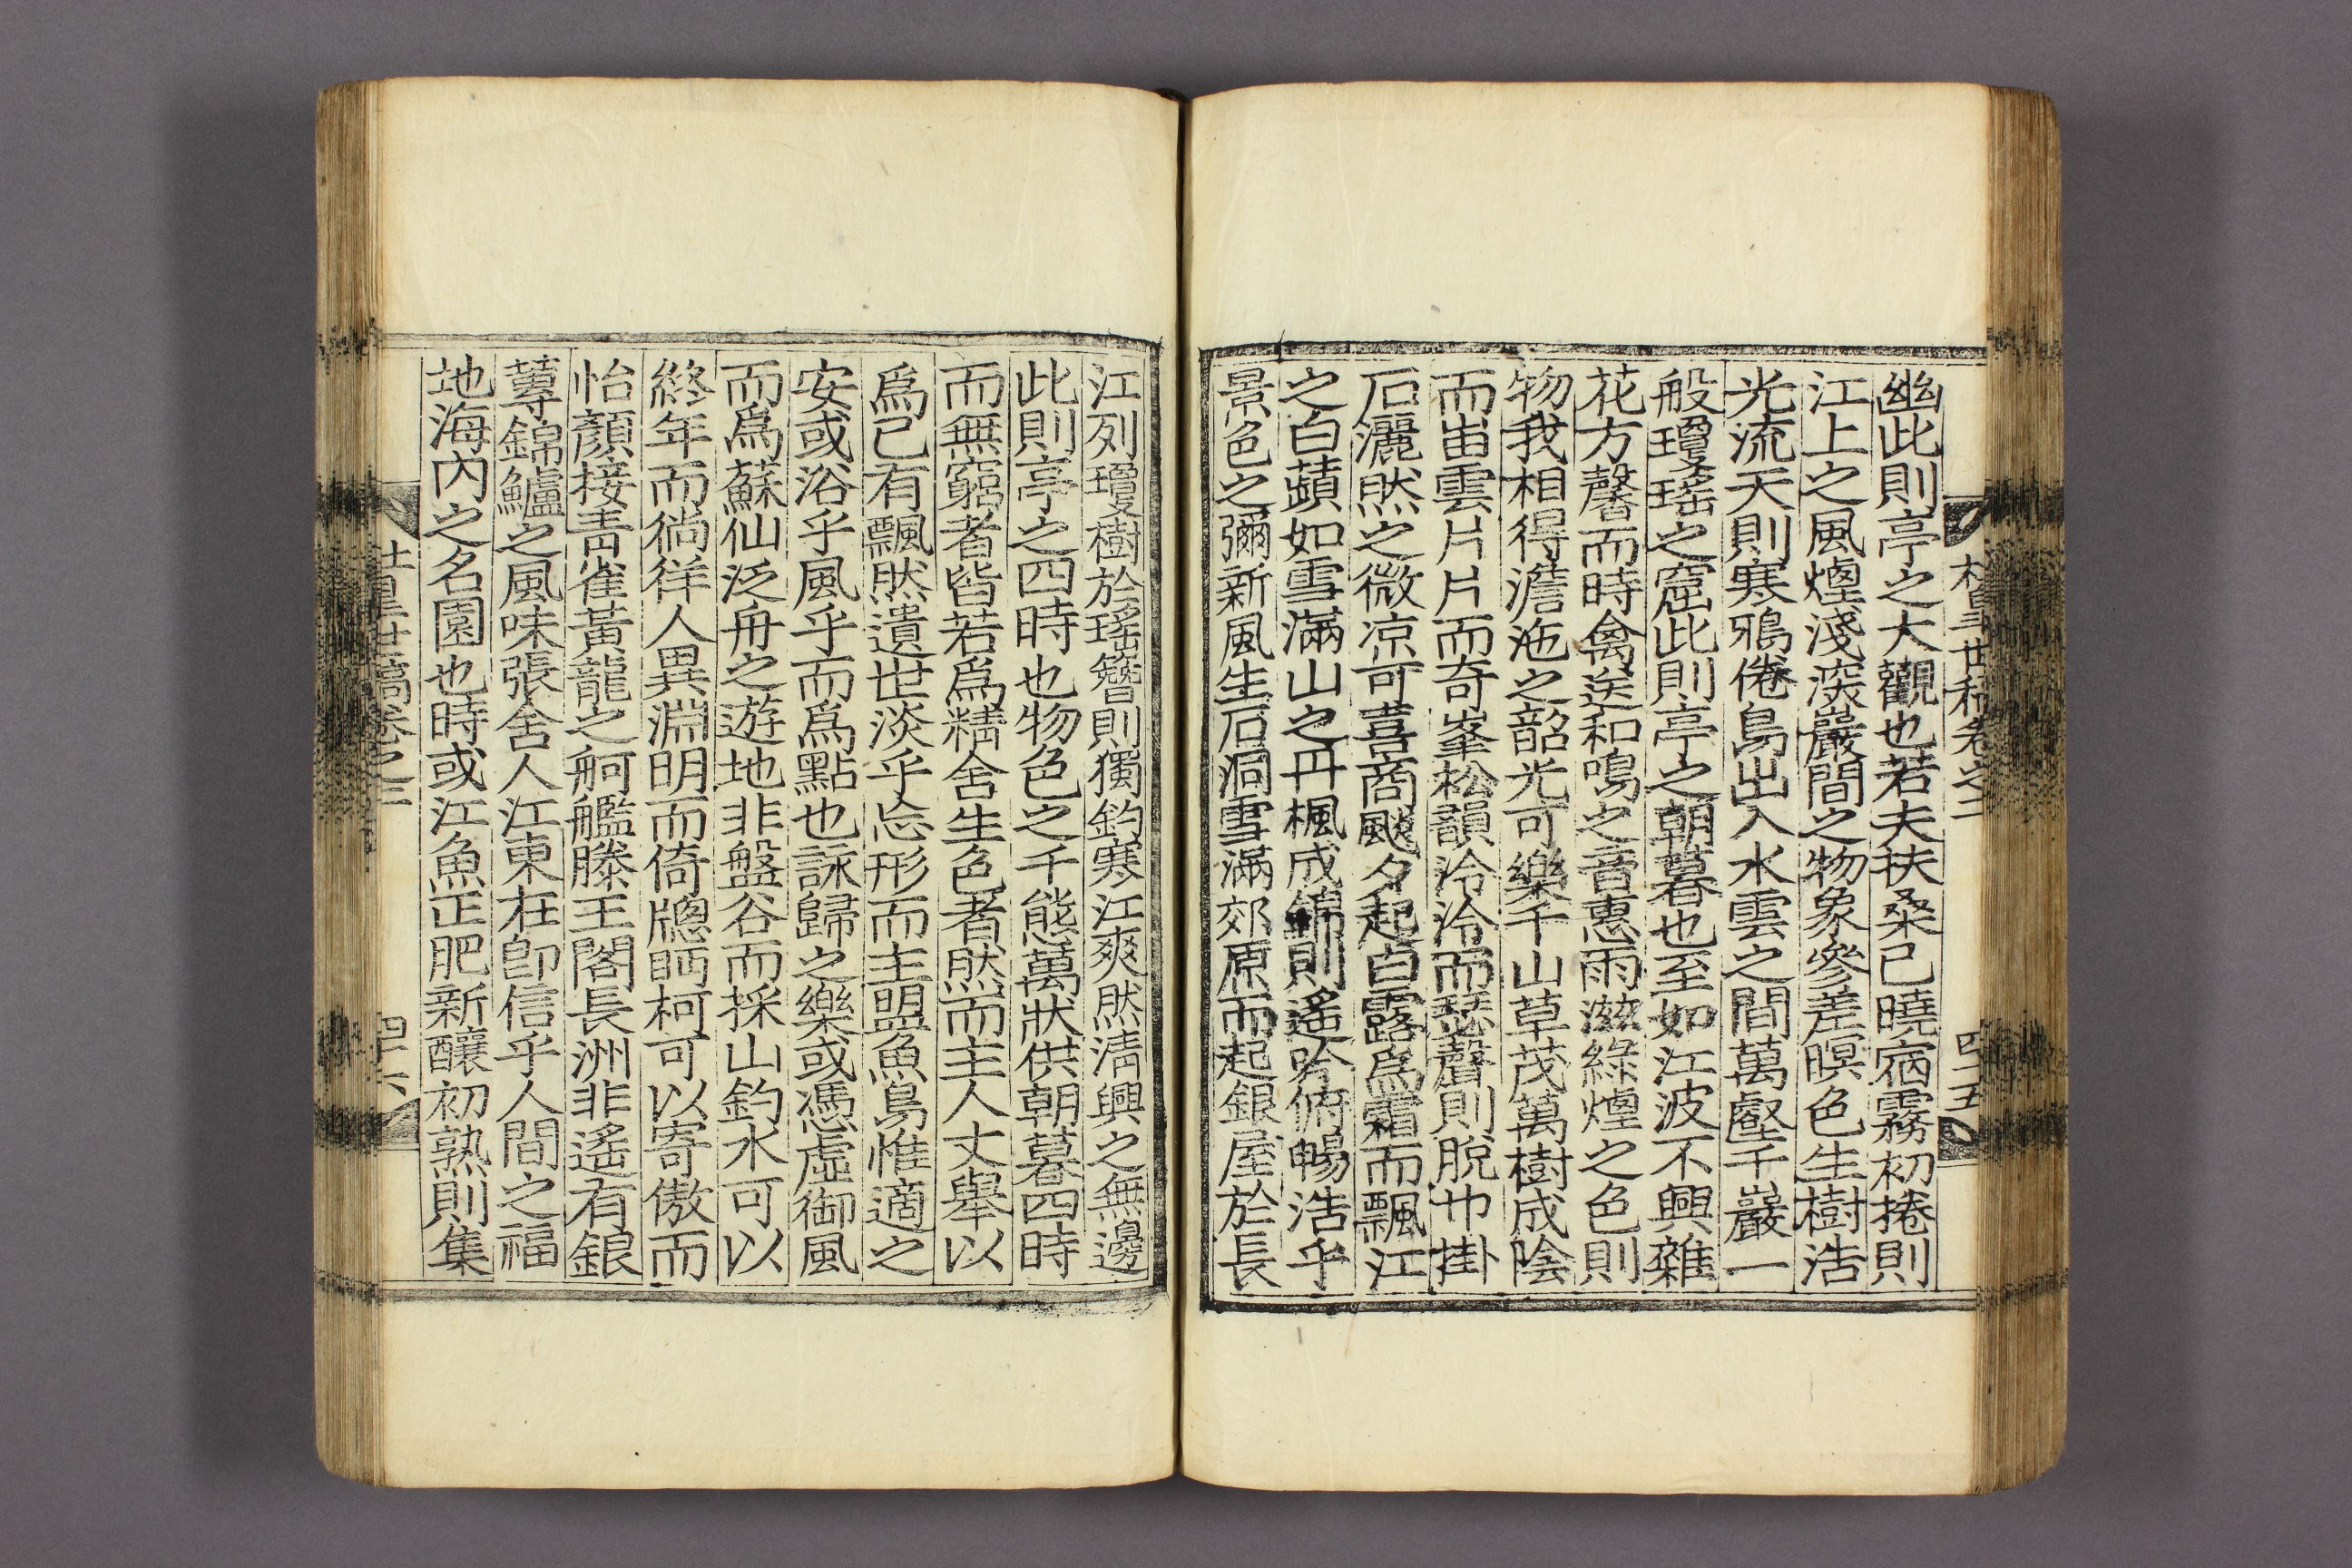 幽此則亭之大觀也若夫扶桑已曉宿霧初捲則
江上之風煙淺深巖間之物象參差暝色生樹浩
光流天則寒鴉倦鳥出入水雲之間萬壑千巖一
般瓊瑤之窟此則亭之朝暮也至如江波不興雜
花方馨而時禽送和鳴之音惠雨滋綠煙之色則
物我相得澹沲之韶光可樂千山草茂萬樹成陰
而宙雲片片而奇峯松韻泠泠而瑟聲則脫巾掛
石灑然之微凉可喜商颷夕起白露爲霜而飄江
之白蘋如雪滿山之丹楓成錦則遙吟俯暢浩乎
景色之彌新風生石洞雪滿郊原而起銀屋於長
江列瓊樹於瑤簪則獨釣寒江爽然淸興之無邊
此則亭之四時也物色之千態萬狀供朝暮四時
而無窮者皆若爲精舍生色者然而主人丈擧以
爲己有飄然遺世淡乎忘形而主盟魚鳥惟適之
安或浴乎風乎而爲點也詠歸之樂或憑虛御風
而爲蘇仙泛舟之遊地非盤谷而採山釣水可以
終年而徜徉人異淵明而倚牕眄柯可以寄傲而
怡顏接靑雀黃龍之舸艦滕王閣長洲非遙有銀
蓴錦鱸之風味張舍人江東在卽信乎人間之福
地海內之名園也時或江魚正肥新釀初熟則集